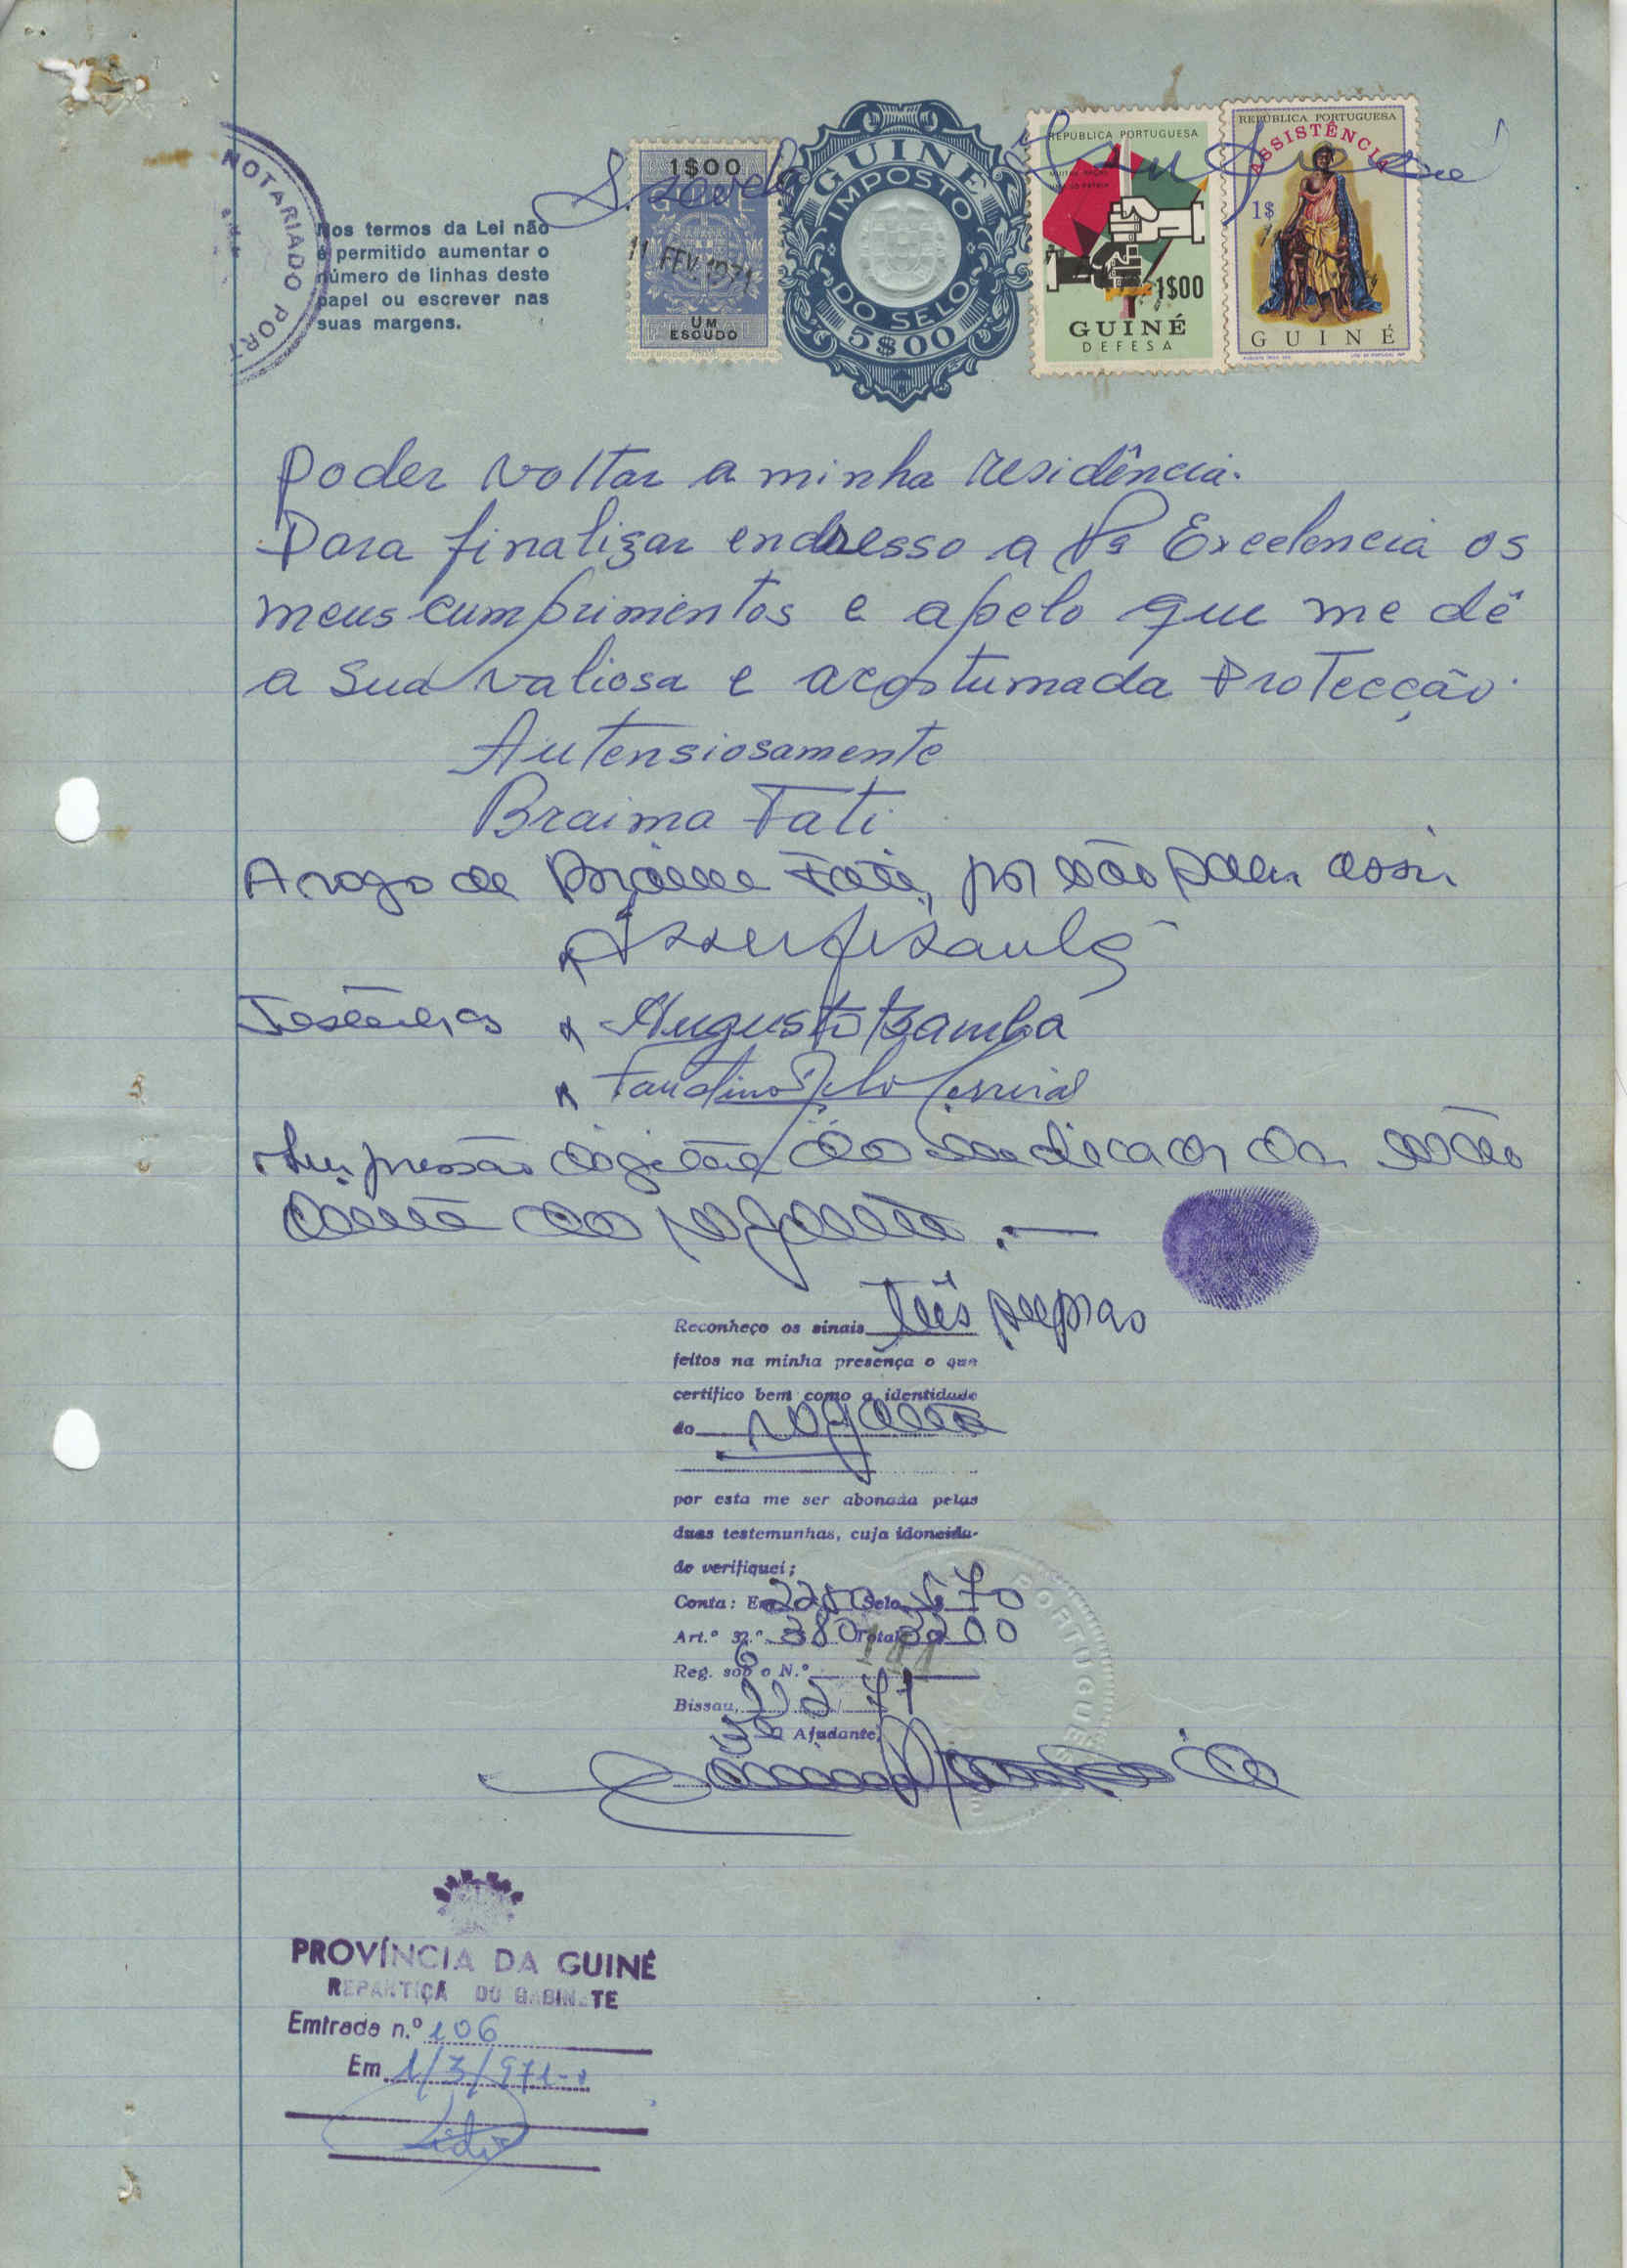 NOTARIADO PORT
Nos termos da Lei não
é permitido aumentar o
número de linhas deste
papel ou escrever nas
suas margens.
1$00
11 FEV. 1971
UM
ESCUDO
GUINÉ
IMPOSTO
DO SELO
5$00
REPÚBLICA PORTUGUESA
1$00
GUINÉ
DEFESA
REPÚBLICA PORTUGUESA
ASSISTÊNCIA
1$
GUINÉ
Poder voltar a minha residência.
Para finalizar endresso a Vª Excelencia os
meus cumprimentos e apelo que me dê
a Sua valiosa e acostumada Protecção.
Autensiosamente
Braima Fati
A rogo de Braima Fati, por não saber assin
Testemunhas x Augusto Bamba
x Faustino
Impressão digital do indicador da mão
direita do rogante.—
Reconheço os sinais três supras
feitos na minha presença o que
certifico bem como a identidade
do rogante
por esta me ser abonada pelas
duas testemunhas, cuja idoneida-
de verifiquei;
Conta: Em 2250 Selo 570
Art.º 32.º 380 Total 3200
Reg. sob o N.º 144
Bissau, 11 2 71
3º Ajudante,
PORTUGUÊS
PROVÍNCIA DA GUINÉ
REPARTIÇÃ DO GABINETE
Entrada n.º 106
Em 1/3/971